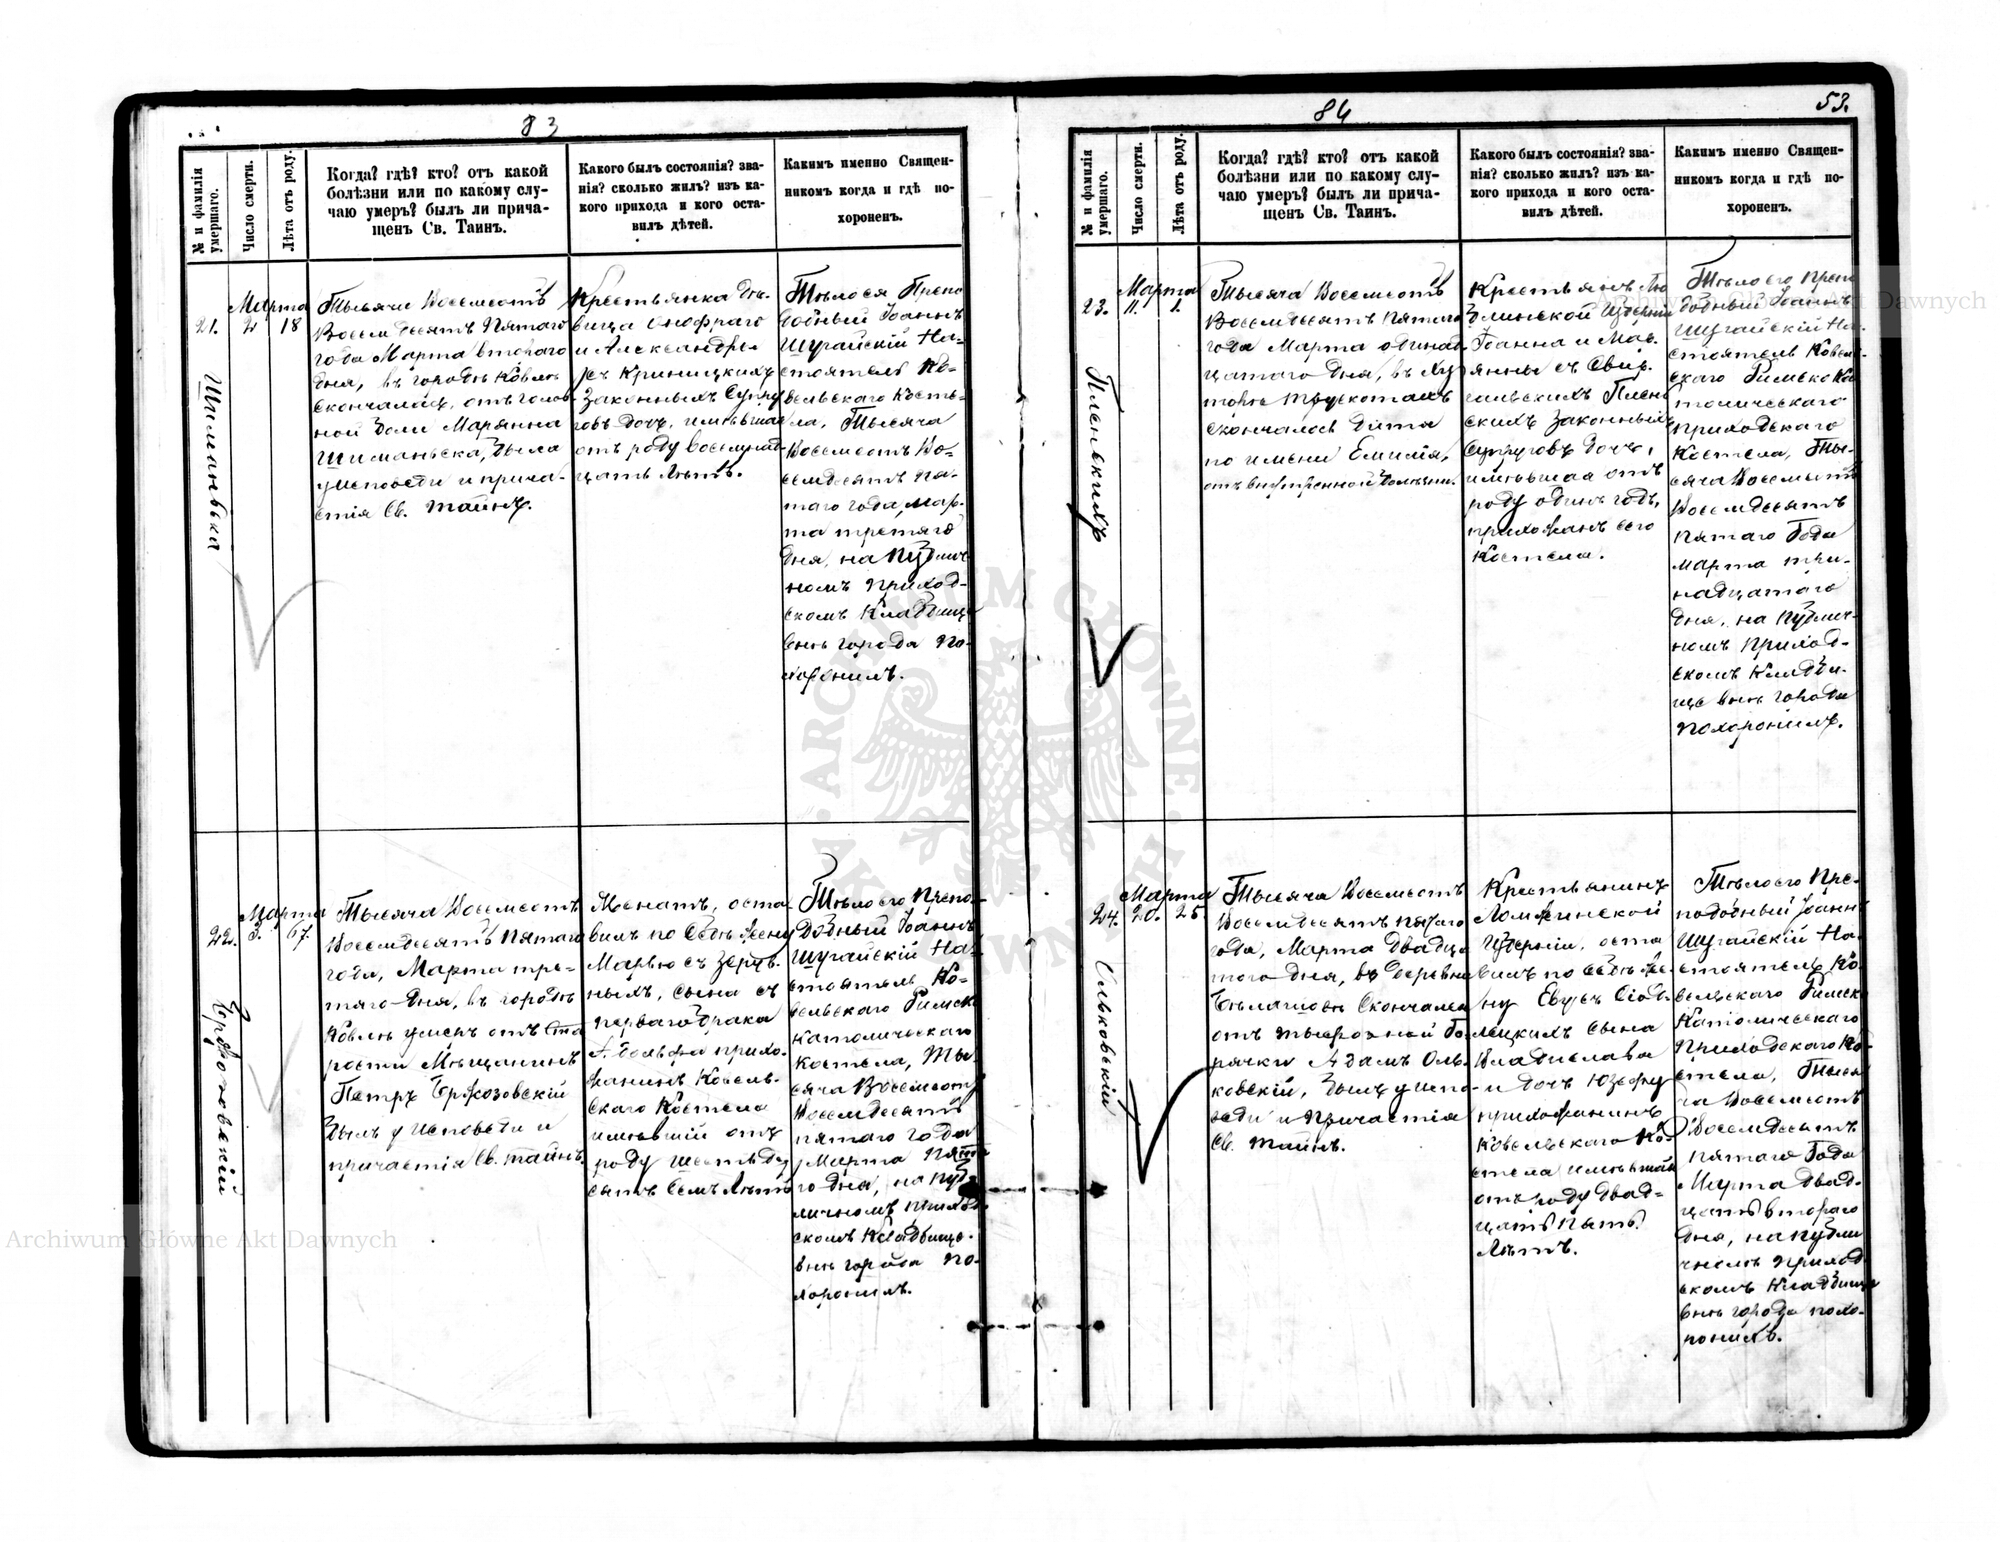 83
№ и фамилія умершаго.
Число смерти.
Лѣта отъ роду.
Когда? гдѣ? кто? отъ какой
болѣзни или по какому слу-
чаю умеръ? былъ ли прича-
щенъ Св. Таинъ.
Какого былъ состоянія? зва-
нія? сколько жилъ? изъ ка-
кого прихода и кого оста-
вилъ дѣтей.
Каким именно Священ-
никомъ когда и гдѣ по-
хороненъ.
21.
Шиманьска
Марта
2
18
Тысяча Восемсотъ
Восемдесятъ Пятаго
года Марта втораго
дня, въ городѣ Ковлѣ
скончалась, отъ голов
ной боли Марянна
Шиманьска, была
у исповѣди и прича-
стія Св. Тайнъ.
Крестьянка дѣ-
вица Онофраго
и Александры
съ Криницкихъ
Законныхъ Супру
говъ дочь, имѣвшая
отъ роду восемнад-
цать Лѣтъ.
Тѣло ея Препо
добный Іоаннъ
Шугайскій На-
стоятель Ко-
вельскаго Косте-
ла, Тысяча
Восемсотъ Во-
семдесятъ Пя-
таго года, Мар-
та третяго
дня, на Публич-
номъ Приход-
скомъ Кладбище
внѣ города По-
хоронилъ.
22.
Бржозовскій
Марта
3.
67.
Тысяча Восемсотъ
Восемдесятъ Пятаго
года, Марта тре-
тяго дня, въ городѣ
Ковлѣ умеръ отъ Ста
рости Мѣщанинъ
Петръ Бржозовскій
былъ у Исповѣди и
причастія Св. Тайнъ.
Женатъ, оста-
вилъ по Себѣ жену
Марью съ
ныхъ, сына съ
перваго брака
Адольфа прихо-
жанинъ Ковель-
скаго Костела
имѣвшій отъ
роду шестьде
сятъ Семь Лѣтъ
Тѣло его Препо-
добный Іоаннъ
Шугайскій На-
стоятель Ко-
вельскаго Римско
Католическаго
Костела, Ты-
сяча Восемсотъ
Восемдесятъ
пятаго года
Марта Пята
го дня, на Пуб-
личномъ Приход-
скомъ Кладбище
внѣ города по-
хоронилъ.
84
53.
№ и фамилія умершаго.
Число смерти.
Лѣта отъ роду.
Когда? гдѣ? кто? отъ какой
болѣзни или по какому слу-
чаю умеръ? былъ ли прича-
щенъ Св. Таинъ.
Какого былъ состоянія? зва-
нія? сколько жилъ? изъ ка-
кого прихода и кого оста-
вилъ дѣтей.
Каким именно Священ-
никомъ когда и гдѣ по-
хороненъ.
23.
Марта
11.
1.
Тысяча Восемсотъ
Восемдесятъ Пятаго
года Марта одинад-
цатаго Дня, въ
Трускотахъ
скончалось Дитя
по имени Емилія,
отъ внутренной болезни.
Крестьянъ Лю
блинской Губерніи
Іоанна и Мар-
янны съ
скихъ Законныхъ
Супруговъ дочь,
имѣвшая отъ
роду одинъ годъ,
прихожанъ сего
Костела.
Тѣло его Препо
добный Іоаннъ
Шугайскій На-
стоятель Ковель-
скаго Римско Ка
толическаго
приходскаго
Костела, Ты-
сяча Восемсотъ
Восемдесятъ
Пятаго Года
Марта три-
надцатаго
Дня, на Публич-
номъ Приход-
скомъ Кладби-
ще внѣ города
Похоронилъ.
24.
Ольковскій
Марта
20.
25.
Тысяча Восемсотъ
Восемдесятъ Пятаго
года, Марта двадца
таго Дня, въ деревнѣ
Скончался
отъ тыфозной Го
рячки Адамъ Оль-
ковскій, былъ у испо-
вѣди и Причастія
Св. Тайнъ.
Крестьянинъ
Ломжинской
Губерніи, оста
вилъ по себѣ Же-
ну Еву съ
лецкихъ Сына
Владислава
и дочь Юзефу
прихожанинъ
Ковельскаго Ко-
стела имѣвшій
отъ роду двад-
цать Пять
Лѣтъ.
Тѣло его Пре-
подобный Іоаннъ
Шугайскій На-
стоятель Ко-
вельскаго Римско
Католическаго
Приходскаго Ко-
стела, Тыся
ча Восемсотъ
Восемдесятъ
пятаго Года
Марта двад-
цать втораго
Дня, на публи
чномъ приход-
скомъ Кладбище
внѣ города похо-
ронилъ.
Archiwum Główne Akt Dawnych